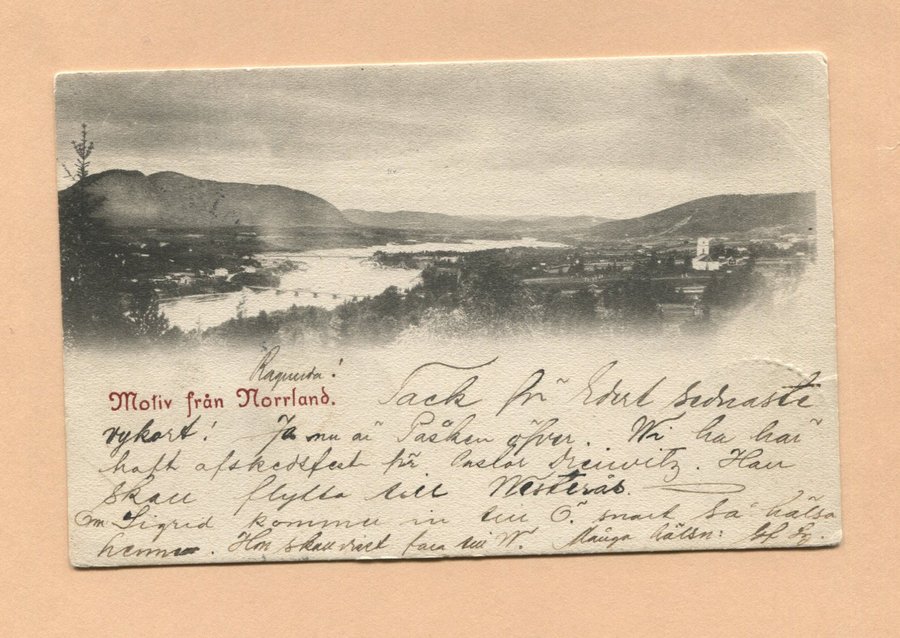 Ragunda!
Motiv från Norrland.
Tack för Edert sednaste
vykort! Ja nu är Påsken öfver. Wi ha här
haft afskedsfest för Pastor Dreiwitz. Han
skall flytta till Westerås.
Om Sigrid kommer in till Ö. snart så hälsa
henne. Hon skall vist fara till W. Många hälsn: